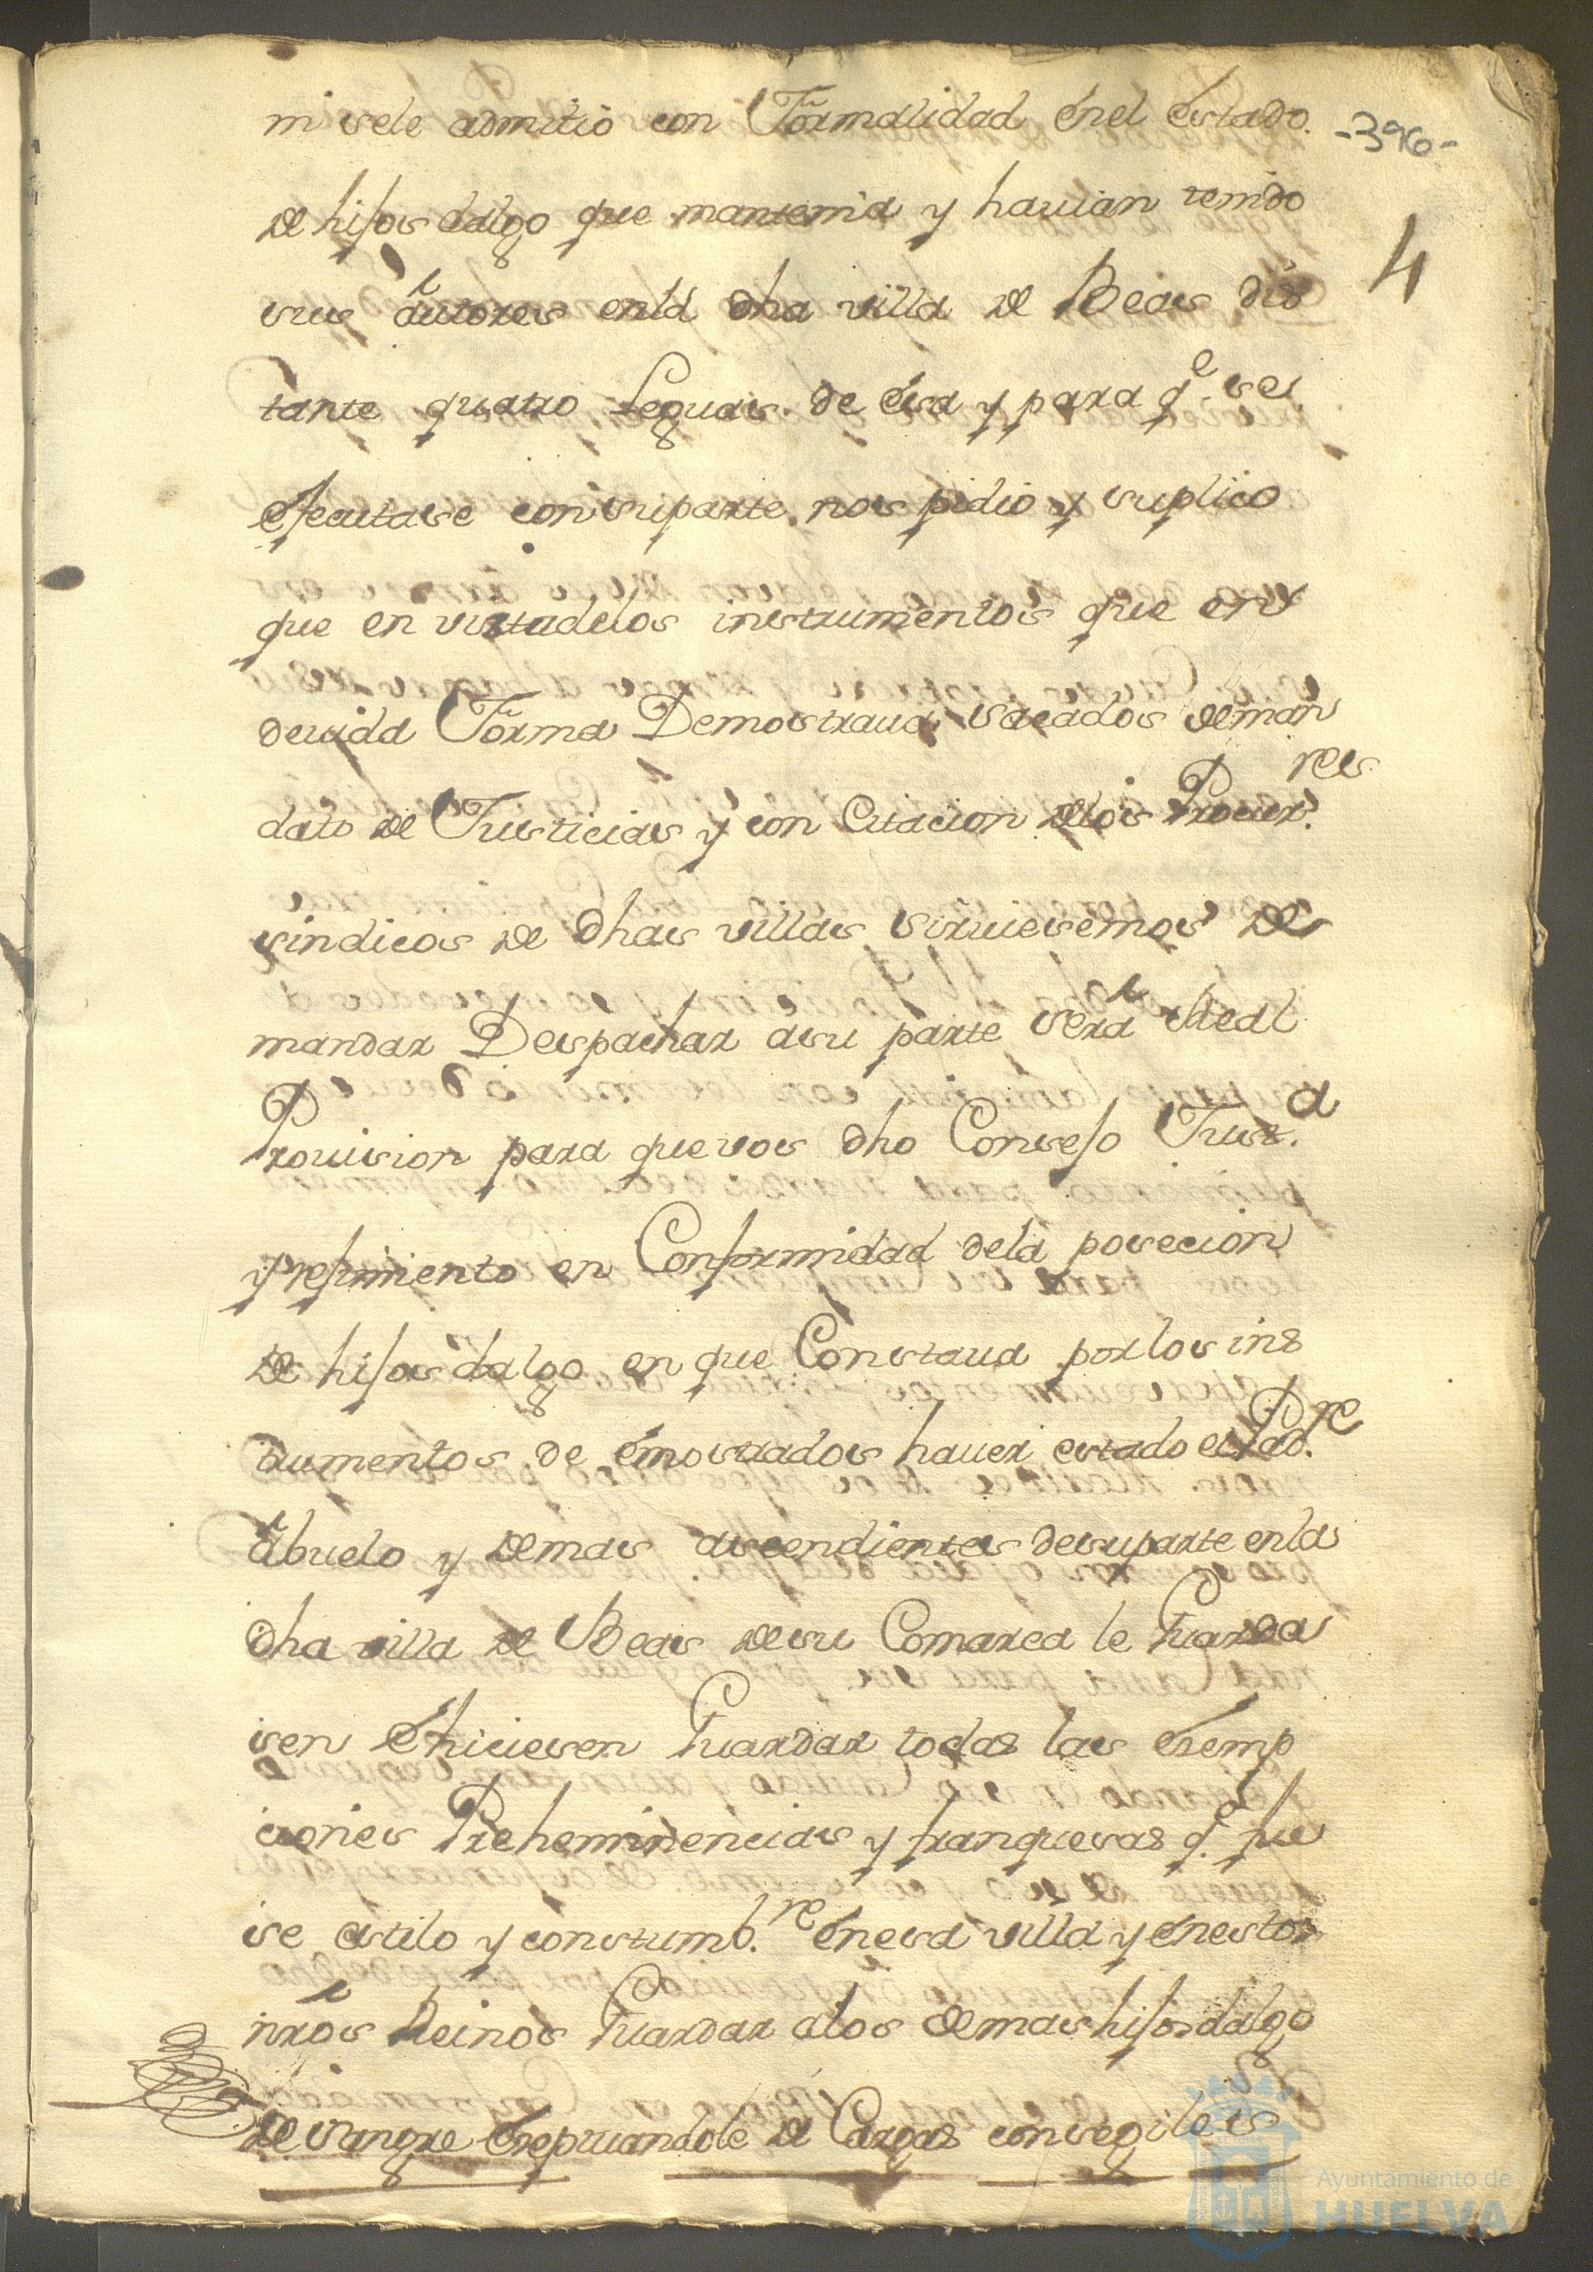 ni sele admitio con Formalidad enel estado. -396-
de hijos dalgo que mantenia y hauian tenido
sus autores enla dha villa de Beas dis 4
tante quatro Leguas de esa y para q.e se
ejecutase con su parte nos pidio y suplico
que en virtud delos instrumentos que en
deuida Forma Demostraua sacados deman
dato de Justicias y con Citacion delos Procur.res
sindicos de dhas villas siruiesemos de
mandar Despachar a su parte será Real
Prouision para que vos dho Consejo Just.a
y rejimiento en Conformidad dela posecion
de hijos dalgo en que Constaua por los ins
trumentos de emostrados hauer estado el Pad.re
abuelo y demas ascendientes de su parte enla
dha villa de Beas de su Comarca le Guarda
sen e hiciesen Guardar todas las exemp
ciones Preheminencias y franquesas q.e fue
se estilo y constumb.re en esa villa y en estos
nros Reinos Guardar a los demas hijos dalgo
de sangre Exepruandole de Cargas consegiles
Ayuntamiento de
HUELVA